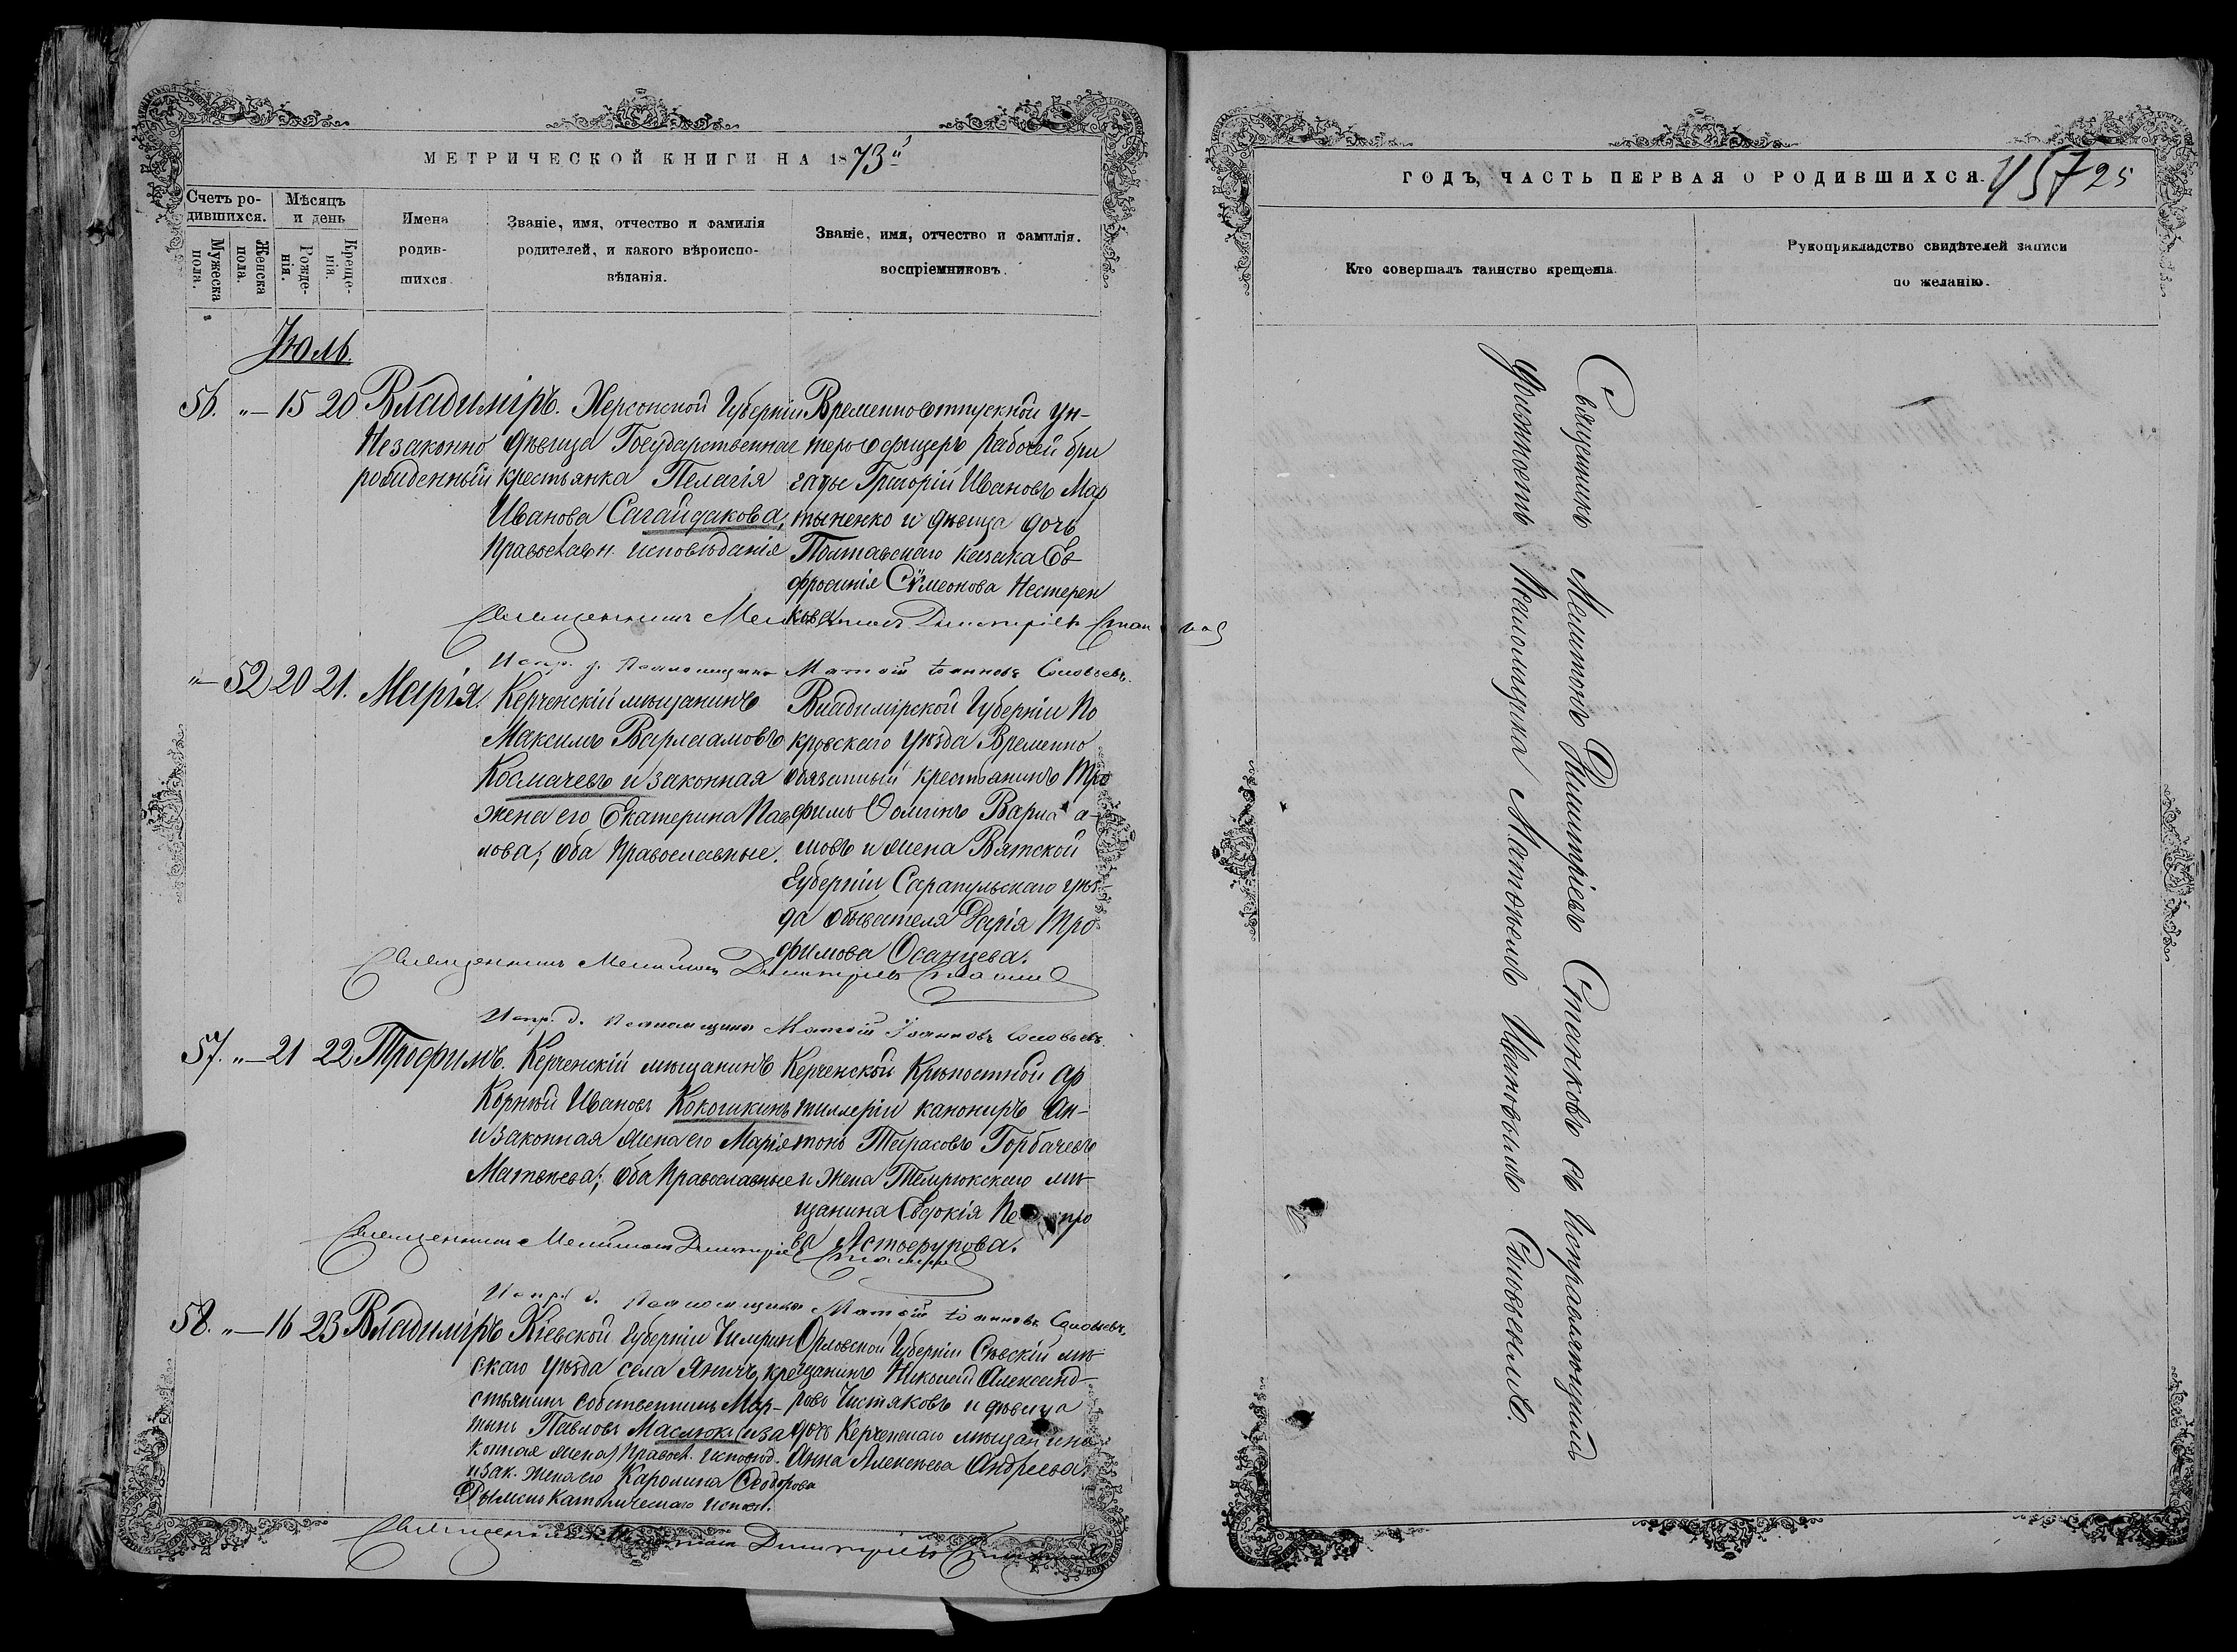 МЕТРИЧЕСКОЙ КНИГИ НА 1873й
Счетъ ро-
дившихся.
Мужеска
пола.
Женска
пола.
Мѣсяцъ
и день
Рожде-
нія.
Креще-
нія.
Имена
родив-
шихся.
Званіе, имя, отчество и фамилія
родителей, и какого вѣроиспо-
вѣданія.
Званіе, имя, отчество и фамилія.
воспріемниковъ.
Іюль.
56. „ — 15 20
Владиміръ.
Незаконно
рожденный
Херсонской Губерніи
дѣвица Государственная
крестьянка Пелагія
Иванова Сагайдакова,
православн. исповѣданія
Временноотпускной ун-
теръ офицеръ рабочей бри
гады Григорій Ивановъ Мар
тыненко и дѣвица дочь
Полтавскаго казака Ев-
фросинія Сѵмеонова Нестерен
кова
Священникъ Мелитонъ Димитріевъ Станковъ
Испр. д. Псаломщика Матѳій Іоанновъ Соловьевъ.
„ — 52 20 21.
Марія.
Керченскій мѣщанинъ
Максимъ Варлаамовъ
Космачевъ и законная
жена его Екатерина Пав
лова; оба православные.
Владимірской Губерніи По
кровскаго уѣзда Временно
обязанный крестьянинъ Тро
фимъ Ѳоминъ Варла а-
мовъ и жена Вятской
Губерніи Сарапульскаго уѣз-
да обывателя Дарія Тро
фимова Осанцева.
Священникъ Мелитонъ Димитріевъ Станковъ
Испр. д. Псаломщика Матѳій Іоанновъ Соловьевъ.
57. „ — 21 22
Трофимъ.
Керченскій мѣщанинъ
Корнѣй Ивановъ Кокошкинъ
и законная жена его Марія
Матвѣева; оба православные
Керченской Крѣпостной ар
тиллеріи канониръ Ан-
тонъ Тарасовъ Горбачевъ
и жена Темрюкскаго мѣ
щанина Евдокія Пе про
ва
Священникъ Мелитонъ Димитріевъ Станковъ
Испр. д. Псаломщика Матѳій Іоанновъ Соловьевъ.
58. „ — 16 23
Владиміръ
Кіевской Губерніи Чигрин
скаго уѣзда села Яничъ, кре
стьянинъ собственникъ Мар-
тынъ Павловъ Маслюкъ (и за
конная жена) правосл. исповѣд.
и зак. жена его Каролина Ѳеодорова
Римско католическаго испов.
Орловской Губерніи Сѣвскій мѣ
щанинъ Николай Александ-
ровъ Чистяковъ и дѣвица
дочь Керченскаго мѣщанина
Анна Алексѣева Андреева.
Священникъ Мелитонъ Димитріевъ Станковъ
ГОДЪ, ЧАСТЬ ПЕРВАЯ О РОДИВШИХСЯ.
457 25
Кто совершалъ таинство крещенія.
Рукоприкладство свидѣтелей записи
по желанію.
Священникъ Мелитонъ Димитріевъ Станковъ съ исправляющимъ
должность Псаломщика Матѳеемъ Ивановымъ Соловьевымъ.